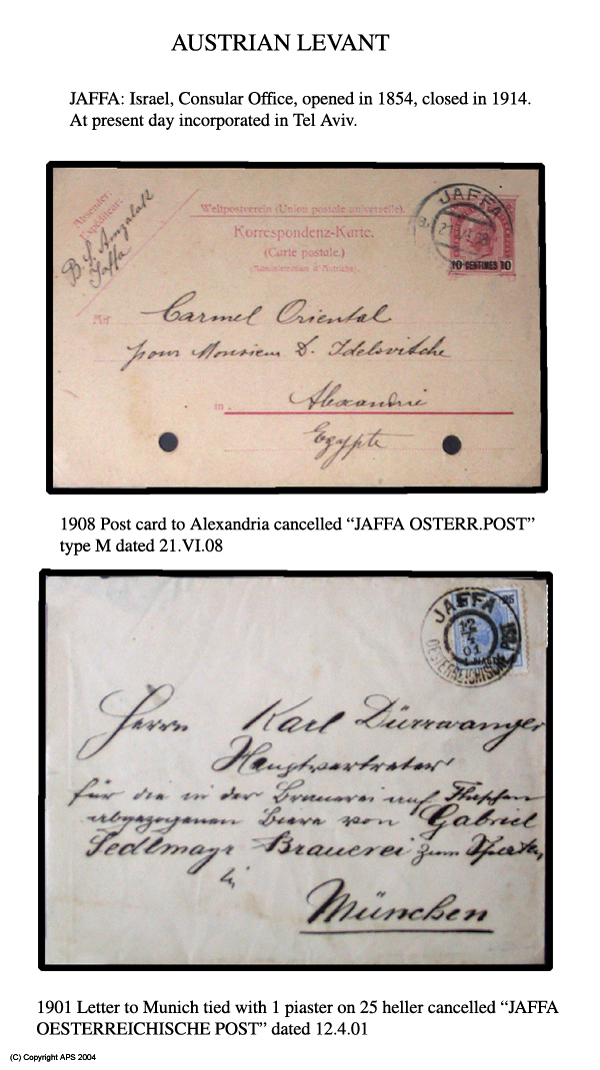 AUSTRIAN LEVANT
JAFFA: Israel, Consular Office, opened in 1854, closed in 1914.
At present day incorporated in Tel Aviv.
Absender:
Expéditeur:
B. S. Amzalak
Jaffa
Weltpostverein (Union postale universelle).
Korrespondenz-Karte.
(Carte postale.)
(Administration d'Autriche)
JAFFA
10 CENTIMES 10
An
Carmel Oriental
pour Monsieur D. Idelovitche
in
Alexandrie
Egypte
1908 Post card to Alexandria cancelled “JAFFA OSTERR.POST”
type M dated 21.VI.08
JAFFA
25
12
4
01
OESTERREICHISCHE POST
Herrn Karl Dürrwanger
Hauptvertreter
für die in der Brauerei auf Flaschen
abgezogenen Biere von Gabriel
Sedlmayr Brauerei zum Spaten
in
München
1901 Letter to Munich tied with 1 piaster on 25 heller cancelled “JAFFA
OESTERREICHISCHE POST” dated 12.4.01
(C) Copyright APS 2004